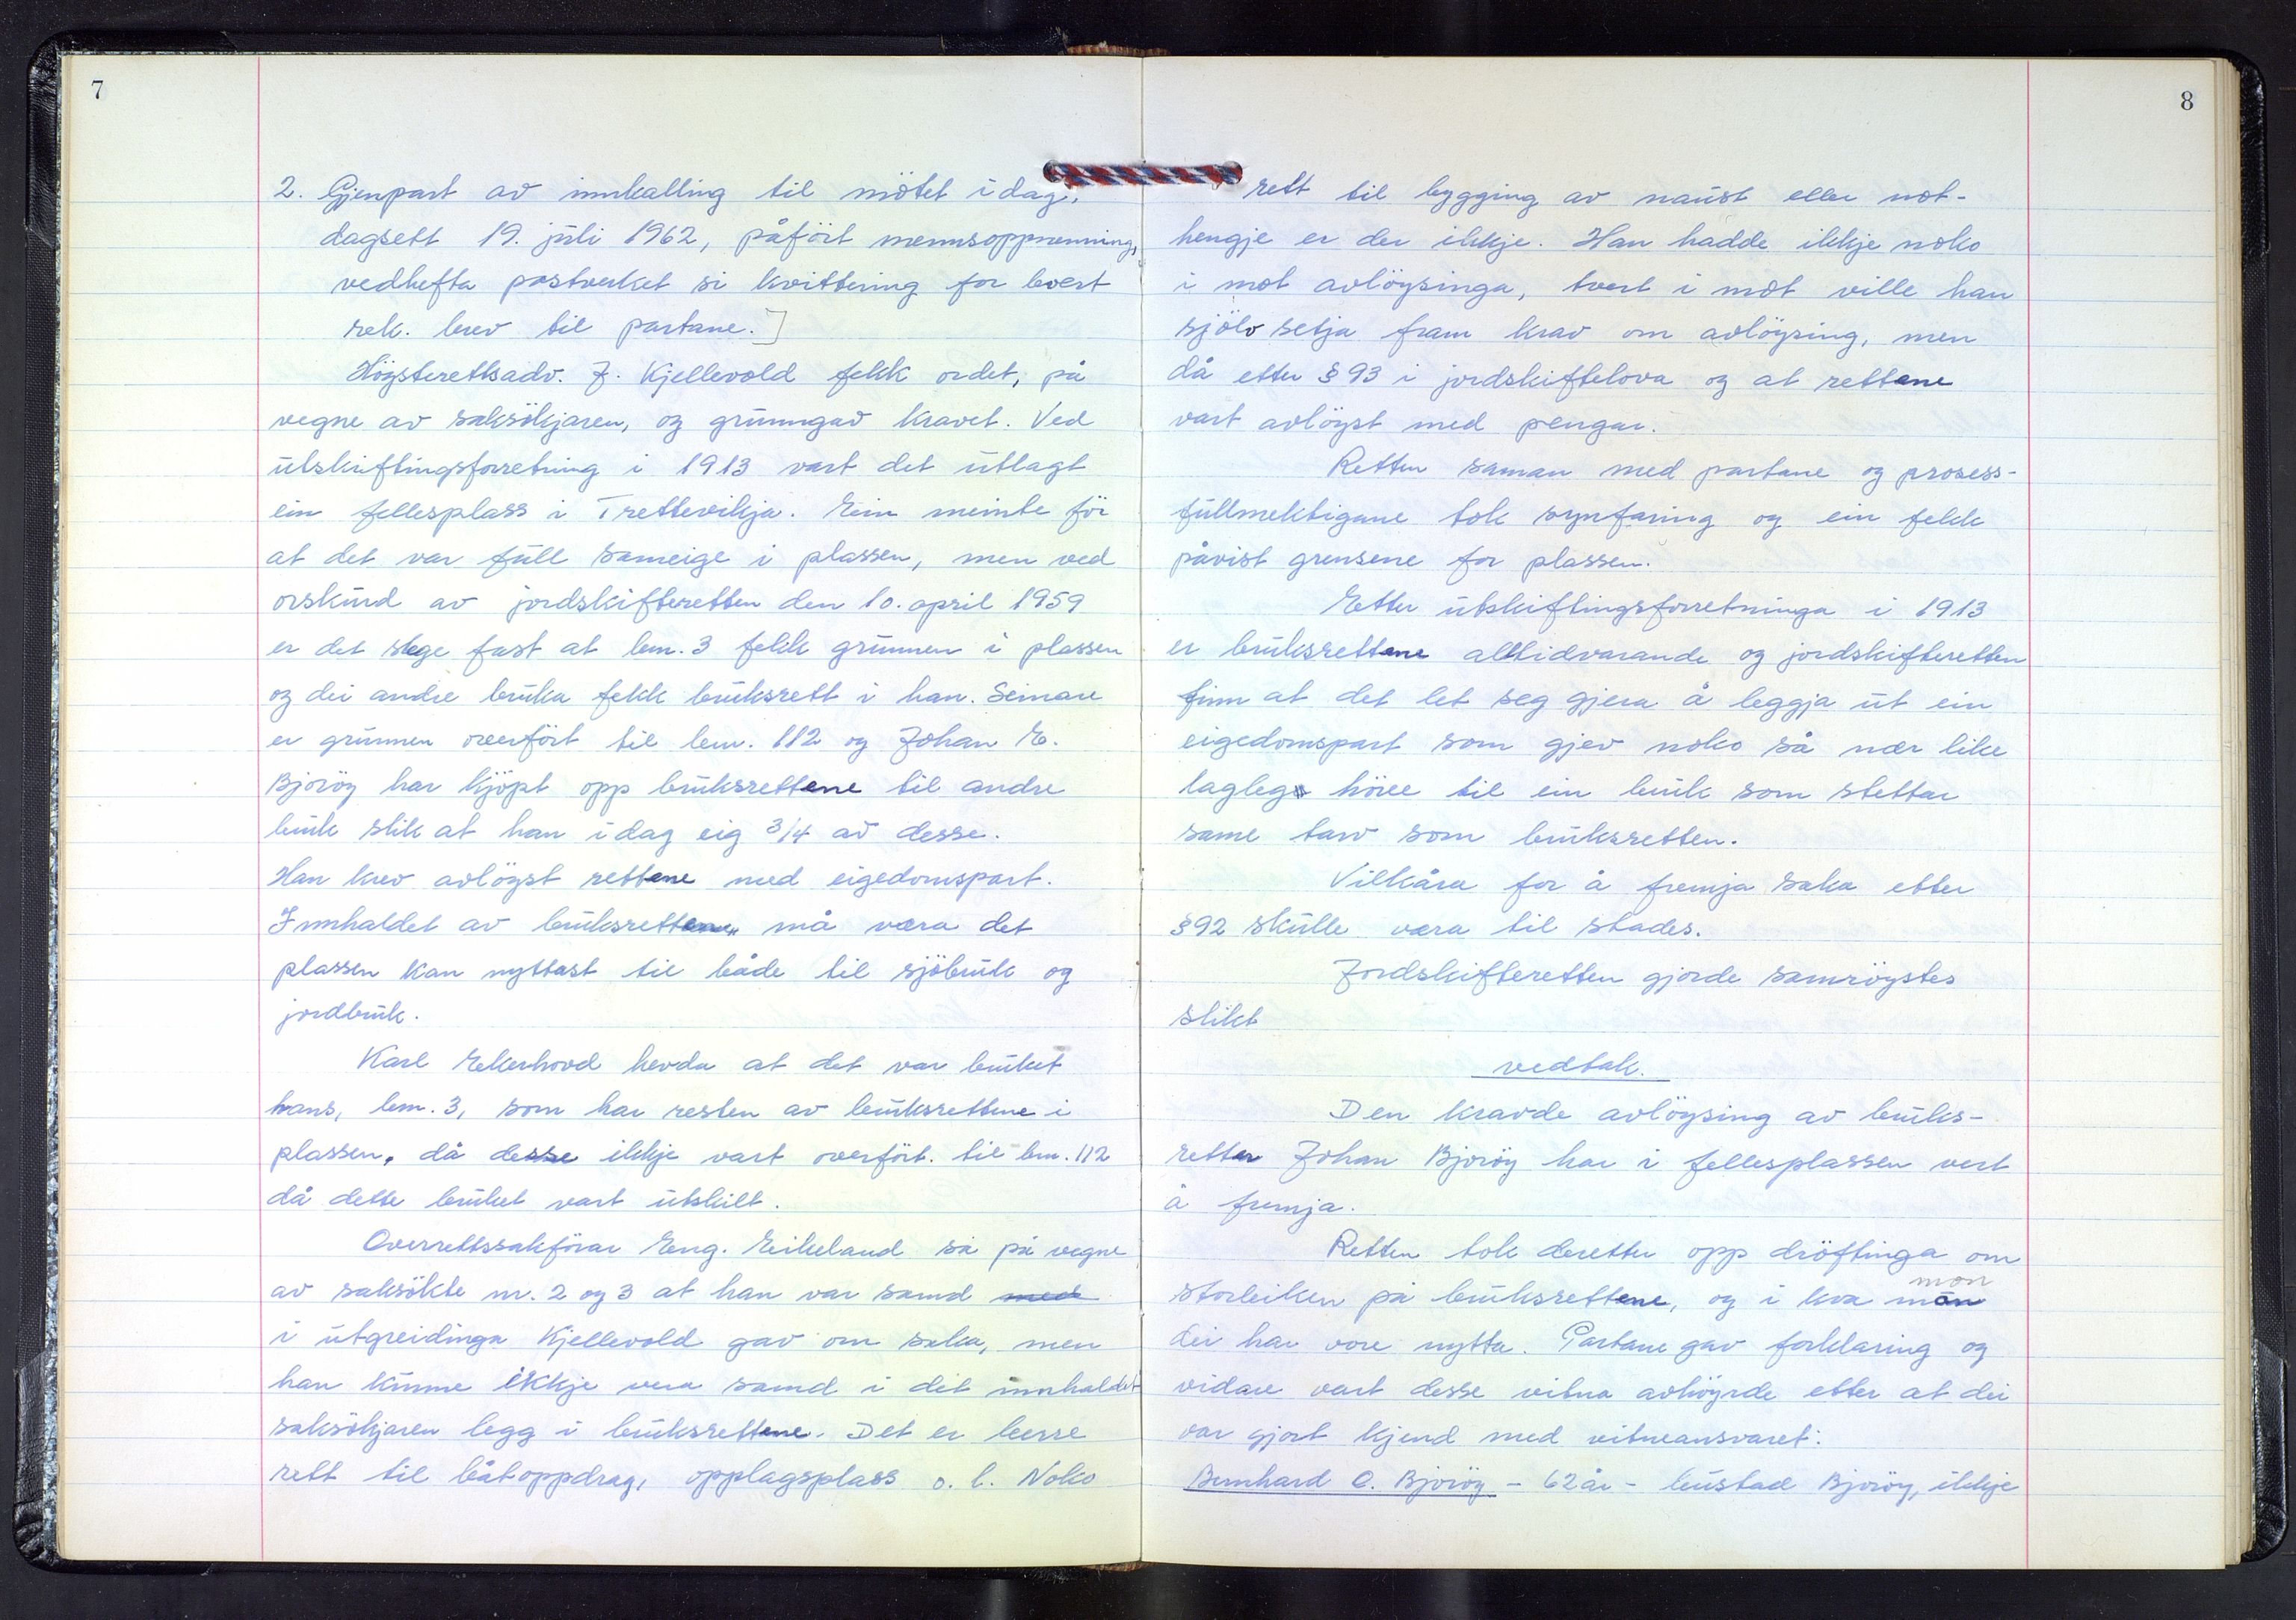 7
2. Gjenpart av innkalling til mötet i dag,
dagsett 19. juli 1962, påfört mennsoppnemning,
vedhefta postverket si kvittering for levert
rek. brev til partane.]
Högsterettsadv. J. Kjellevold fekk ordet, på
vegne av saksökjaren, og grunngav kravet. Ved
utskiftingsforretning i 1913 vart det utlagt
ein fellesplass i Trettevikja. Ein meinte för
at det var full sameige i plassen, men ved
orskurd av jordskifteretten den 10. april 1959
er det slege fast at bnr. 3 fekk grunnen i plassen
og dei andre bruka fekk bruksrett i han. Seinare
er grunnen overfört til bnr. 112 og Johan E.
Bjoröy har kjöpt opp bruksrettene til andre
bruk slik at han i dag eig 3/4 av desse.
Han krev avlöyst rettene med eigedomspart.
Innhaldet av bruksretten må vera det
plassen kan nyttast til både til sjöbruk og
jordbruk.
Karl Ekerhovd hevda at det var bruket
hans, bnr. 3, som har resten av bruksrettene i
plassen, då desse ikkje vart overfört til bnr. 112
då dette bruket vart utskilt.
Overrettssakförar Eng. Eikeland sa på vegne
av saksökte nr. 2 og 3 at han var samd med
i utgreidinga Kjellevold gav om saka, men
han kunne ikkje vera samd i det innhaldet
saksökjaren legg i bruksrettene. Det er berre
rett til båtoppdrag, opplagsplass o. l. Noko
8
rett til bygging av naust eller not-
hengje er der ikkje. Han hadde ikkje noko
i mot avlöysinga, tvert i mot ville han
sjölv setja fram krav om avlöysing, men
då etter § 93 i jordskiftelova og at rettane
vart avlöyst med pengar.
Retten saman med partane og prosess-
fullmektigane tok synfaring og ein fekk
påvist grensene for plassen.
Etter utskiftingsforretninga i 1913
er bruksrettane alltidvarande og jordskifteretten
finn at det let seg gjera å leggja ut ein
eigedomspart som gjev noko så nær like
lagleg höve til ein bruk som stettar
same tarv som bruksretten.
Vilkåra for å fremja saka etter
§ 92 skulle vera til stades.
Jordskifteretten gjorde samröystes
slikt
vedtak.
Den kravde avlöysing av bruks-
retter Johan Bjoröy har i fellesplassen vert
å fremja.
Retten tok deretter opp dröftinga om
storleiken på bruksrettene, og i kva mon
mon
dei har vore nytta. Partane gav forklaring og
vidare vart desse vitna avhöyrde etter at dei
var gjort kjend med vitneansvaret:
Bernhard O. Bjoröy - 62 år - bustad Bjoröy, ikkje